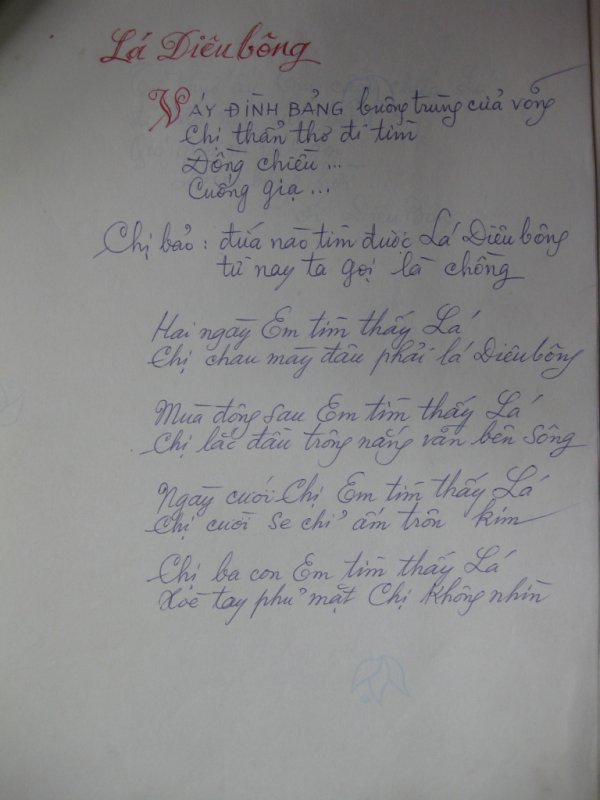 Lá Diêubông
VÁY ĐÌNH BẢNG buông trùng cửa võng
Chị thẩn thơ đi tìm
Đồng chiều ...
Cuống giạ ...
Chị bảo : đứa nào tìm được Lá Diêubông
từ nay ta gọi là chồng
Hai ngày Em tìm thấy Lá
Chị chau mày đâu phải lá Diêubông
Mùa đông sau Em tìm thấy Lá
Chị lắc đầu trông nắng vãn bên sông
Ngày cưới Chị Em tìm thấy Lá
Chị cười se chỉ ấm trôn kim
Chị ba con Em tìm thấy Lá
Xòe tay phủ mặt Chị không nhìn